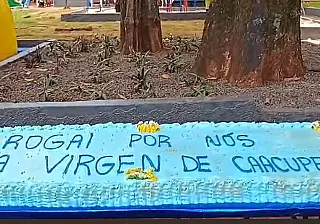 ROGAI POR NÓS
A VIRGEN DE CAACUPE